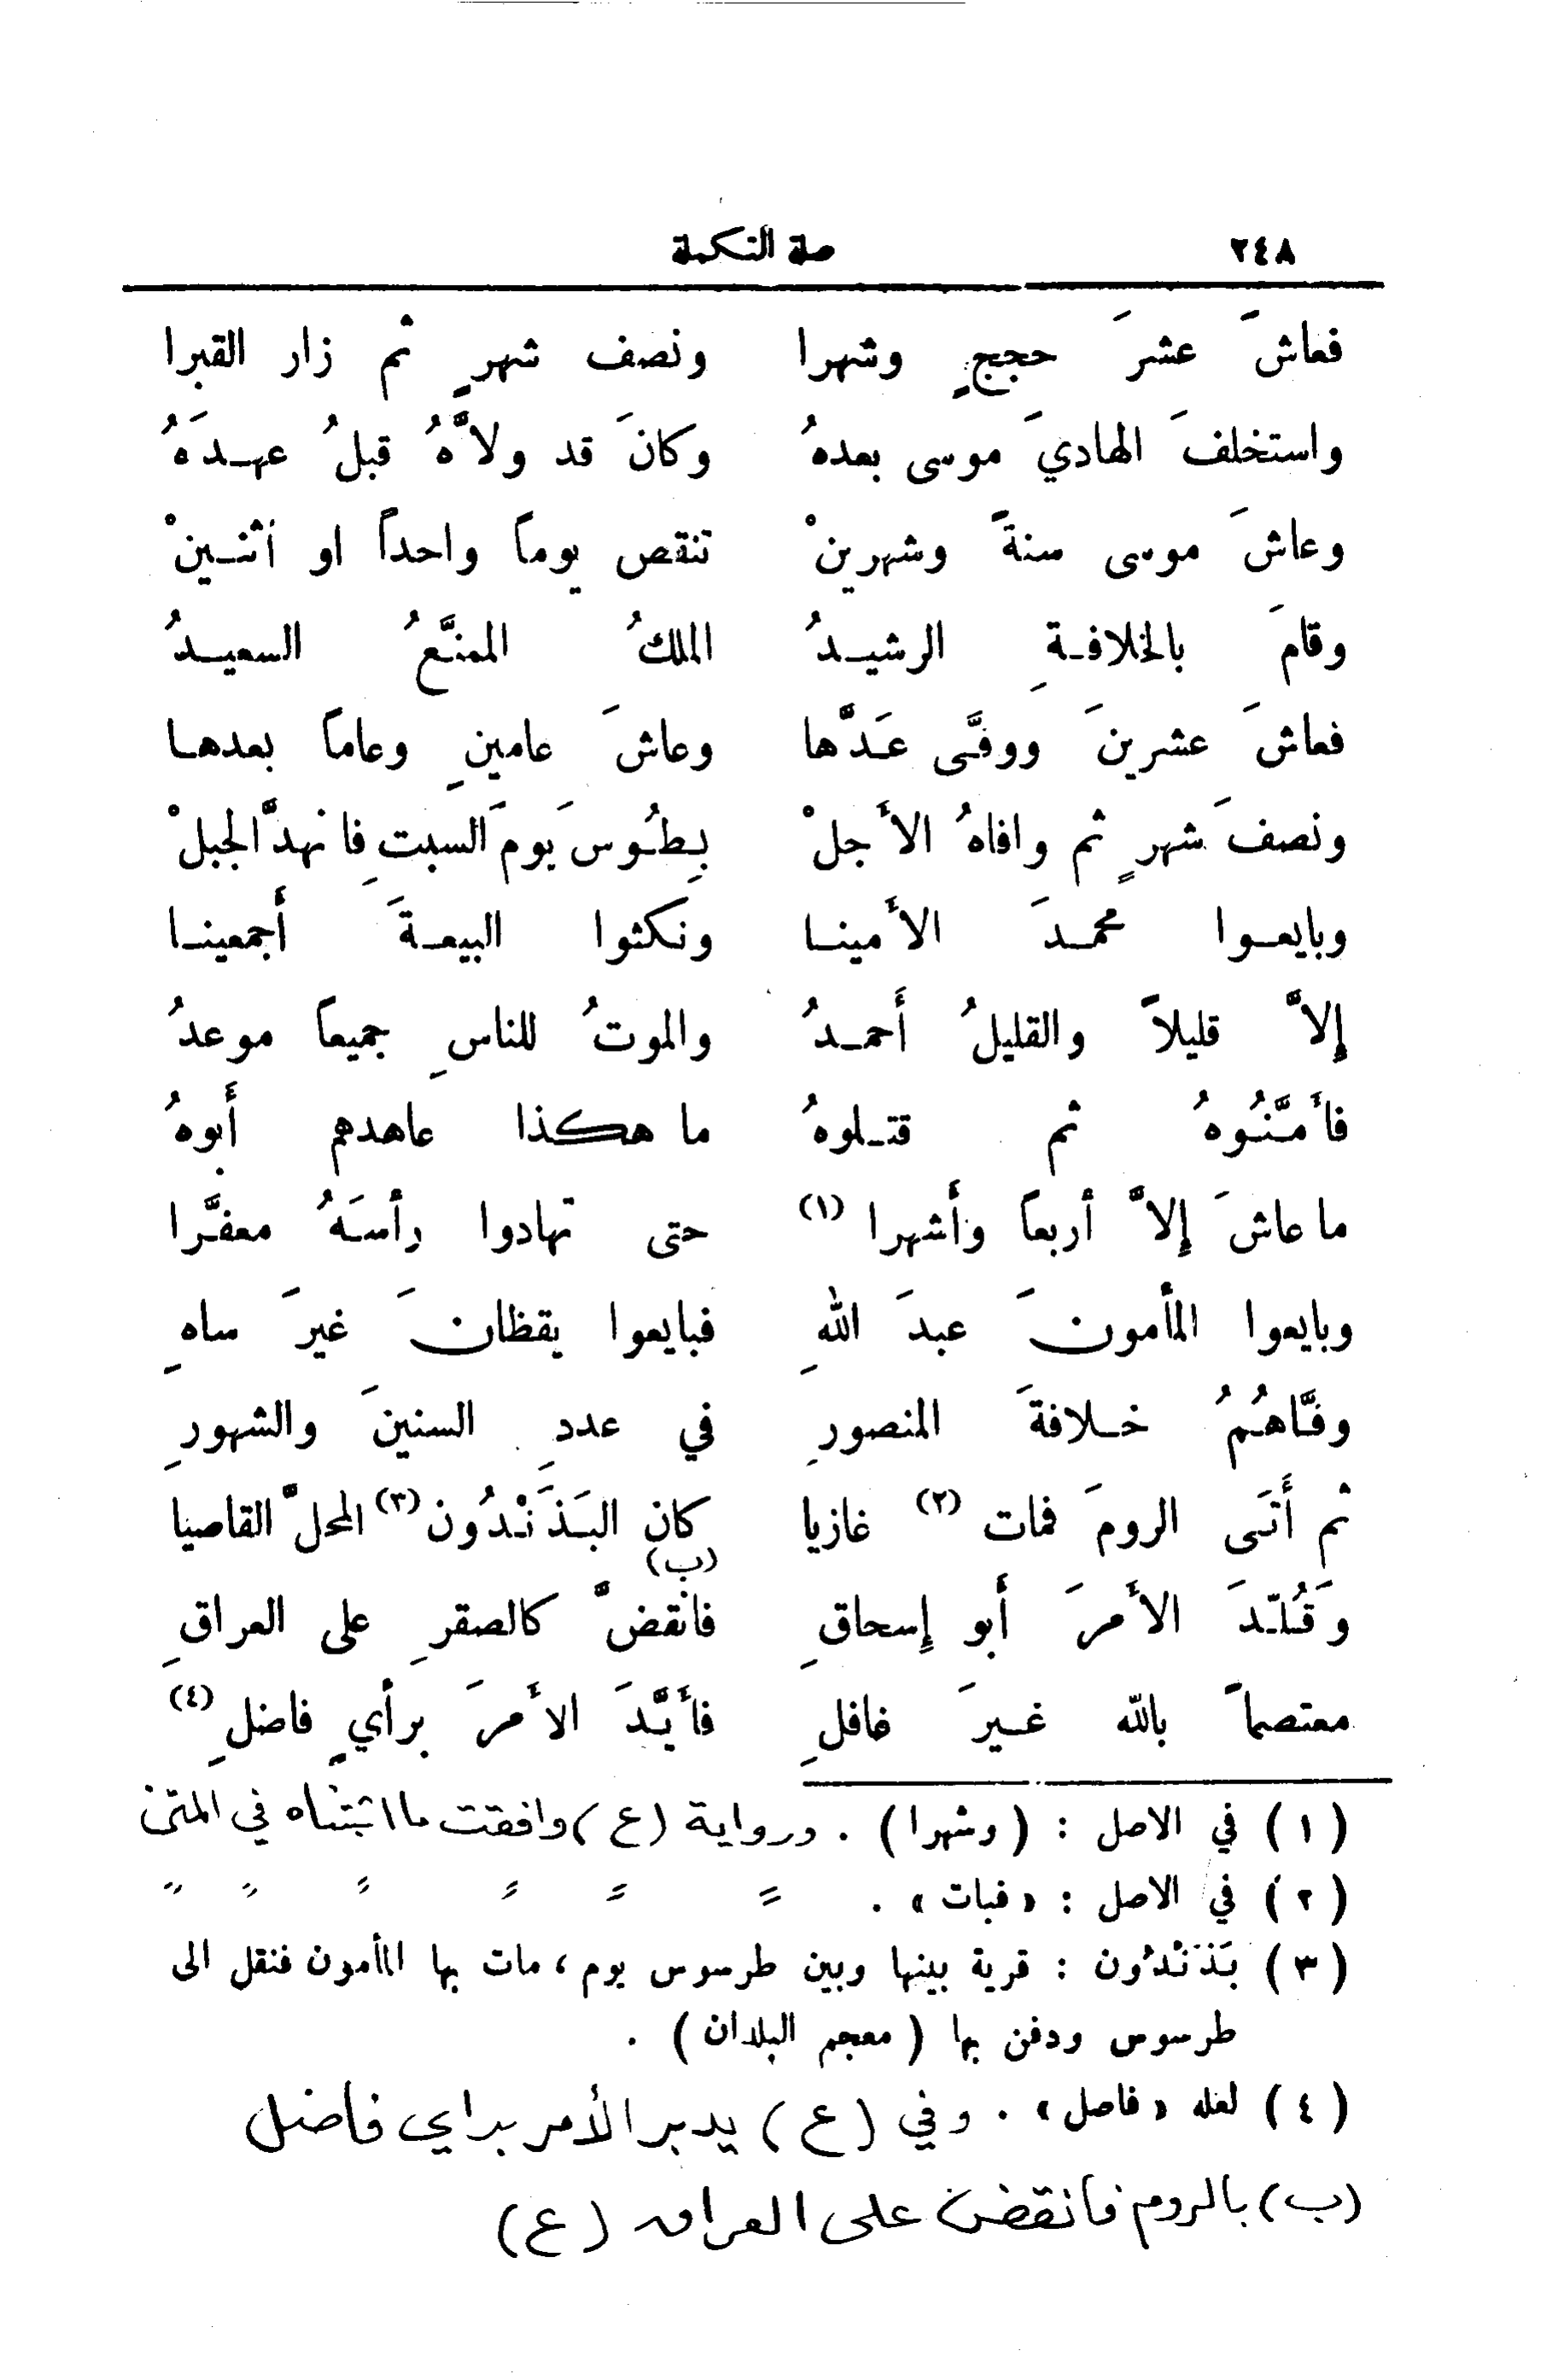 ٢٤٨ صلة التكملة
فعاشَ عشرَ حججٍ وشهرا ونصف شهرٍ ثم زار القبرا
واستخلفَ الهاديَ موسى بعدهُ وكانَ قد ولاَّهُ قبلُ عهدَهُ
وعاشَ موسى سنةً وشهرينْ تنقص يوماً واحداً او اثنينْ
وقامَ بالخلافةِ الرشيدُ الملكُ الممنَّعُ السعيدُ
فعاشَ عشرينَ ووفَّى عَدَّها وعاشَ عامينِ وعاماً بعدها
ونصفَ شهرٍ ثم وافاهُ الأجلْ بِطُوسَ يومَ السبتِ فانهدَّ الجبلْ
وبايعوا محمدَ الأمينا ونكثوا البيعةَ أجمعينا
إلاَّ قليلاً والقليلُ أحمدُ والموتُ للناسِ جميعاً موعدُ
فأمَّنُوهُ ثم قتلوهُ ما هكذا عاهدهم أبوهُ
ما عاشَ إلاَّ أربعاً وأشهرا (١) حتى تهادوا رأسَهُ معفَّرا
وبايعوا المأمونَ عبدَ اللهِ فبايعوا يقظانَ غيرَ ساهِ
وفَّاهُمُ خلافةَ المنصورِ في عددِ السنينَ والشهورِ
ثم أَتَى الرومَ فمات (٢) غازيا كان البَذَنْدُون (٣) المحلَّ القاصيا
(ب)
وَقُلّدَ الأمرَ أبو إسحاقِ فانقضَّ كالصقرِ على العراقِ
معتصماً بالله غيرَ غافلِ فأيَّدَ الأمرَ برأيٍ فاضلِ (٤)
(١) في الاصل : (وشهرا) . ورواية (ع) وافقت ما اثبتناه في المتن
(٢) في الاصل : «فبات» . 〃 〃 〃 〃 〃 〃
(٣) بَذَنْدُون : قرية بينها وبين طرسوس يوم ، مات بها المأمون فنقل الى
طرسوس ودفن بها ( معجم البلدان ) .
(٤) لعله «فاصل» . وفي (ع) يدبر الأمر براي فاضل
(ب) بالروم فانقض على العراق (ع)